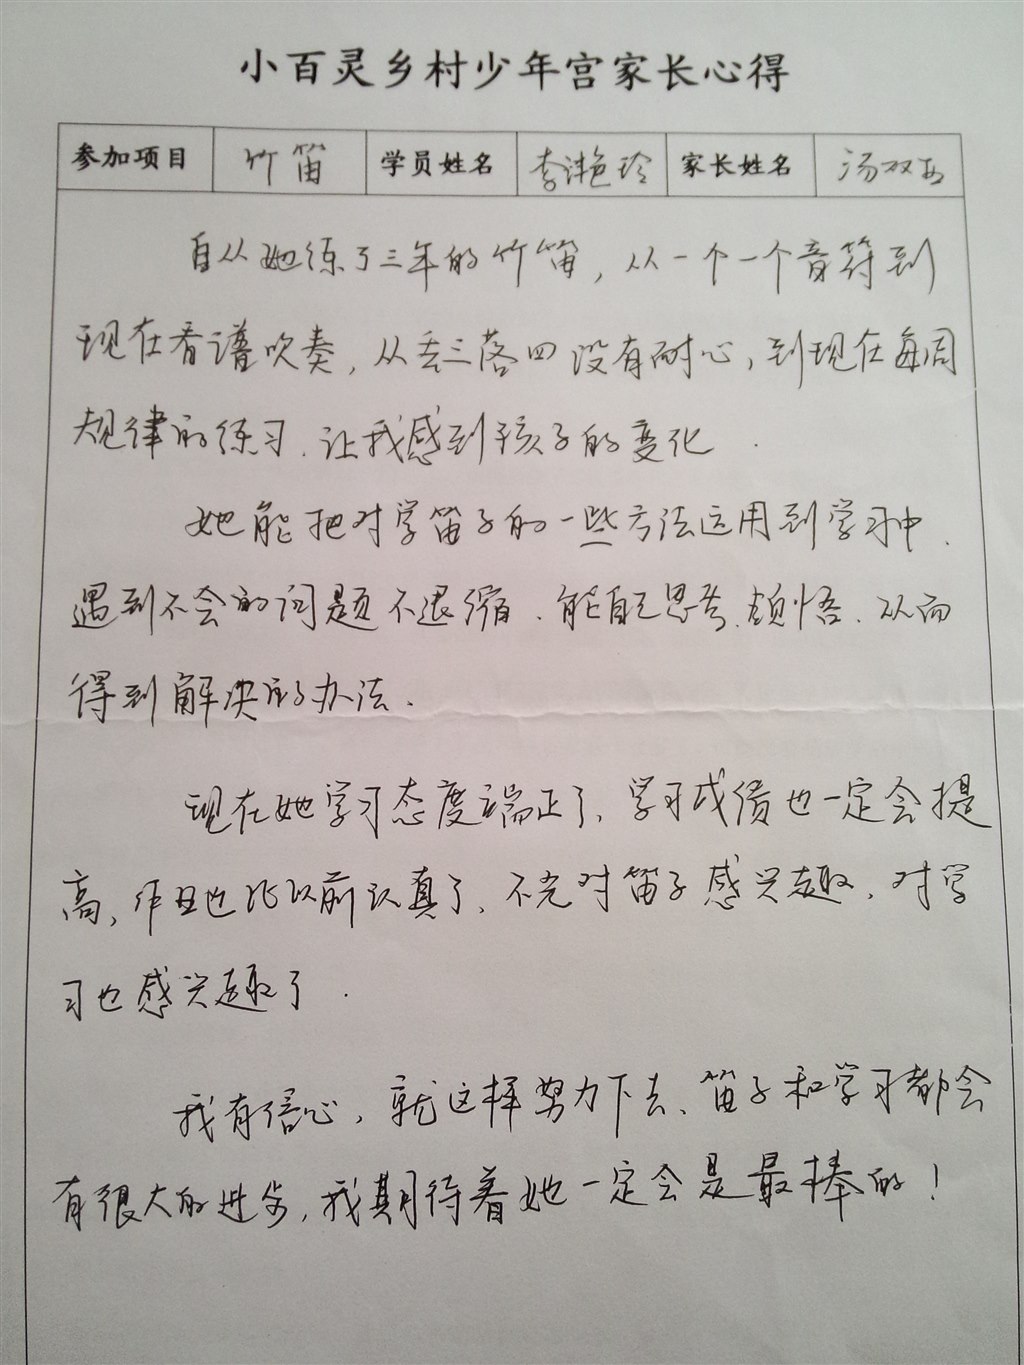 小百灵乡村少年宫家长心得
参加项目 竹笛 学员姓名 李滟玲 家长姓名 汤双
自从她练了三年的竹笛，从一个一个音符到
现在看谱吹奏，从丢三落四没有耐心，到现在每周
规律的练习.让我感到孩子的变化.
她能把对学笛子的一些方法运用到学习中.
遇到不会的问题不退缩.能自己思考.领悟.从而
得到解决的办法.
现在她学习态度端正了、学习成绩也一定会提
高，作且也比以前认真了、不光对笛子感兴趣，对学
习也感兴趣了.
我有信心，就这样努力下去、笛子和学习都会
有很大的进步，我期待着她一定会是最棒的！